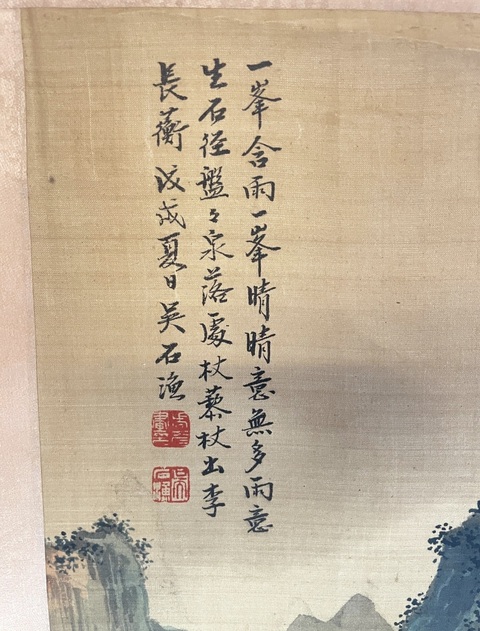 一峯含雨一峯晴晴意無多雨意
生石径盤々泉落處杖藜杖出李
長蘅戊戌夏日吳石漁